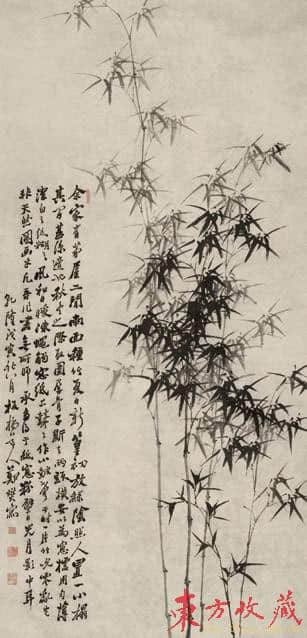 余家有茅屋二間南面種竹夏日新篁初放綠陰照人置一小榻
其中甚涼適也秋冬之際取圍屏骨子斷去兩頭橫安以為窗櫺用勻薄
潔白之紙糊之風和日暖凍蠅觸窗紙上鼕鼕作小鼓聲於時一片竹影零亂豈
非天然圖畫乎凡吾畫竹無所師承多得於紙窗粉壁日光月影中耳
乾隆戊寅秋月板橋道人鄭燮
東方收藏